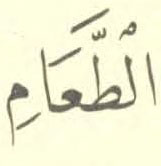 الْطَّعَامِ